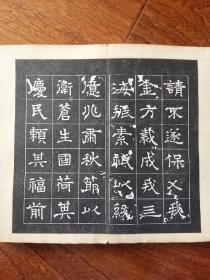 請不遂保乂我
金方裁成我三
海振素祇以綏
億兆肅秋節以
衛蒼生國荷其
慶民賴其福前